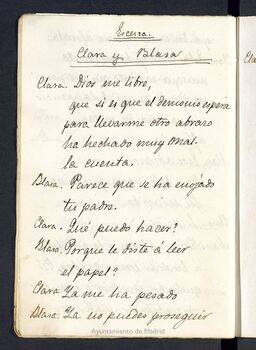 Escena.
Clara y Blasa
Clara. Dios me libre,
que si es que el demonio espera
para llevarme otro abrazo
ha hechado muy mal
la cuenta.
Blasa. Parece que se ha enojado
tu padre.
Clara. Qué puedo hacer?
Blasa. Porque le diste á leer
el papel?
Clara Ya me ha pesado
Blasa: Ya no puedes proseguir
Ayuntamiento de Madrid